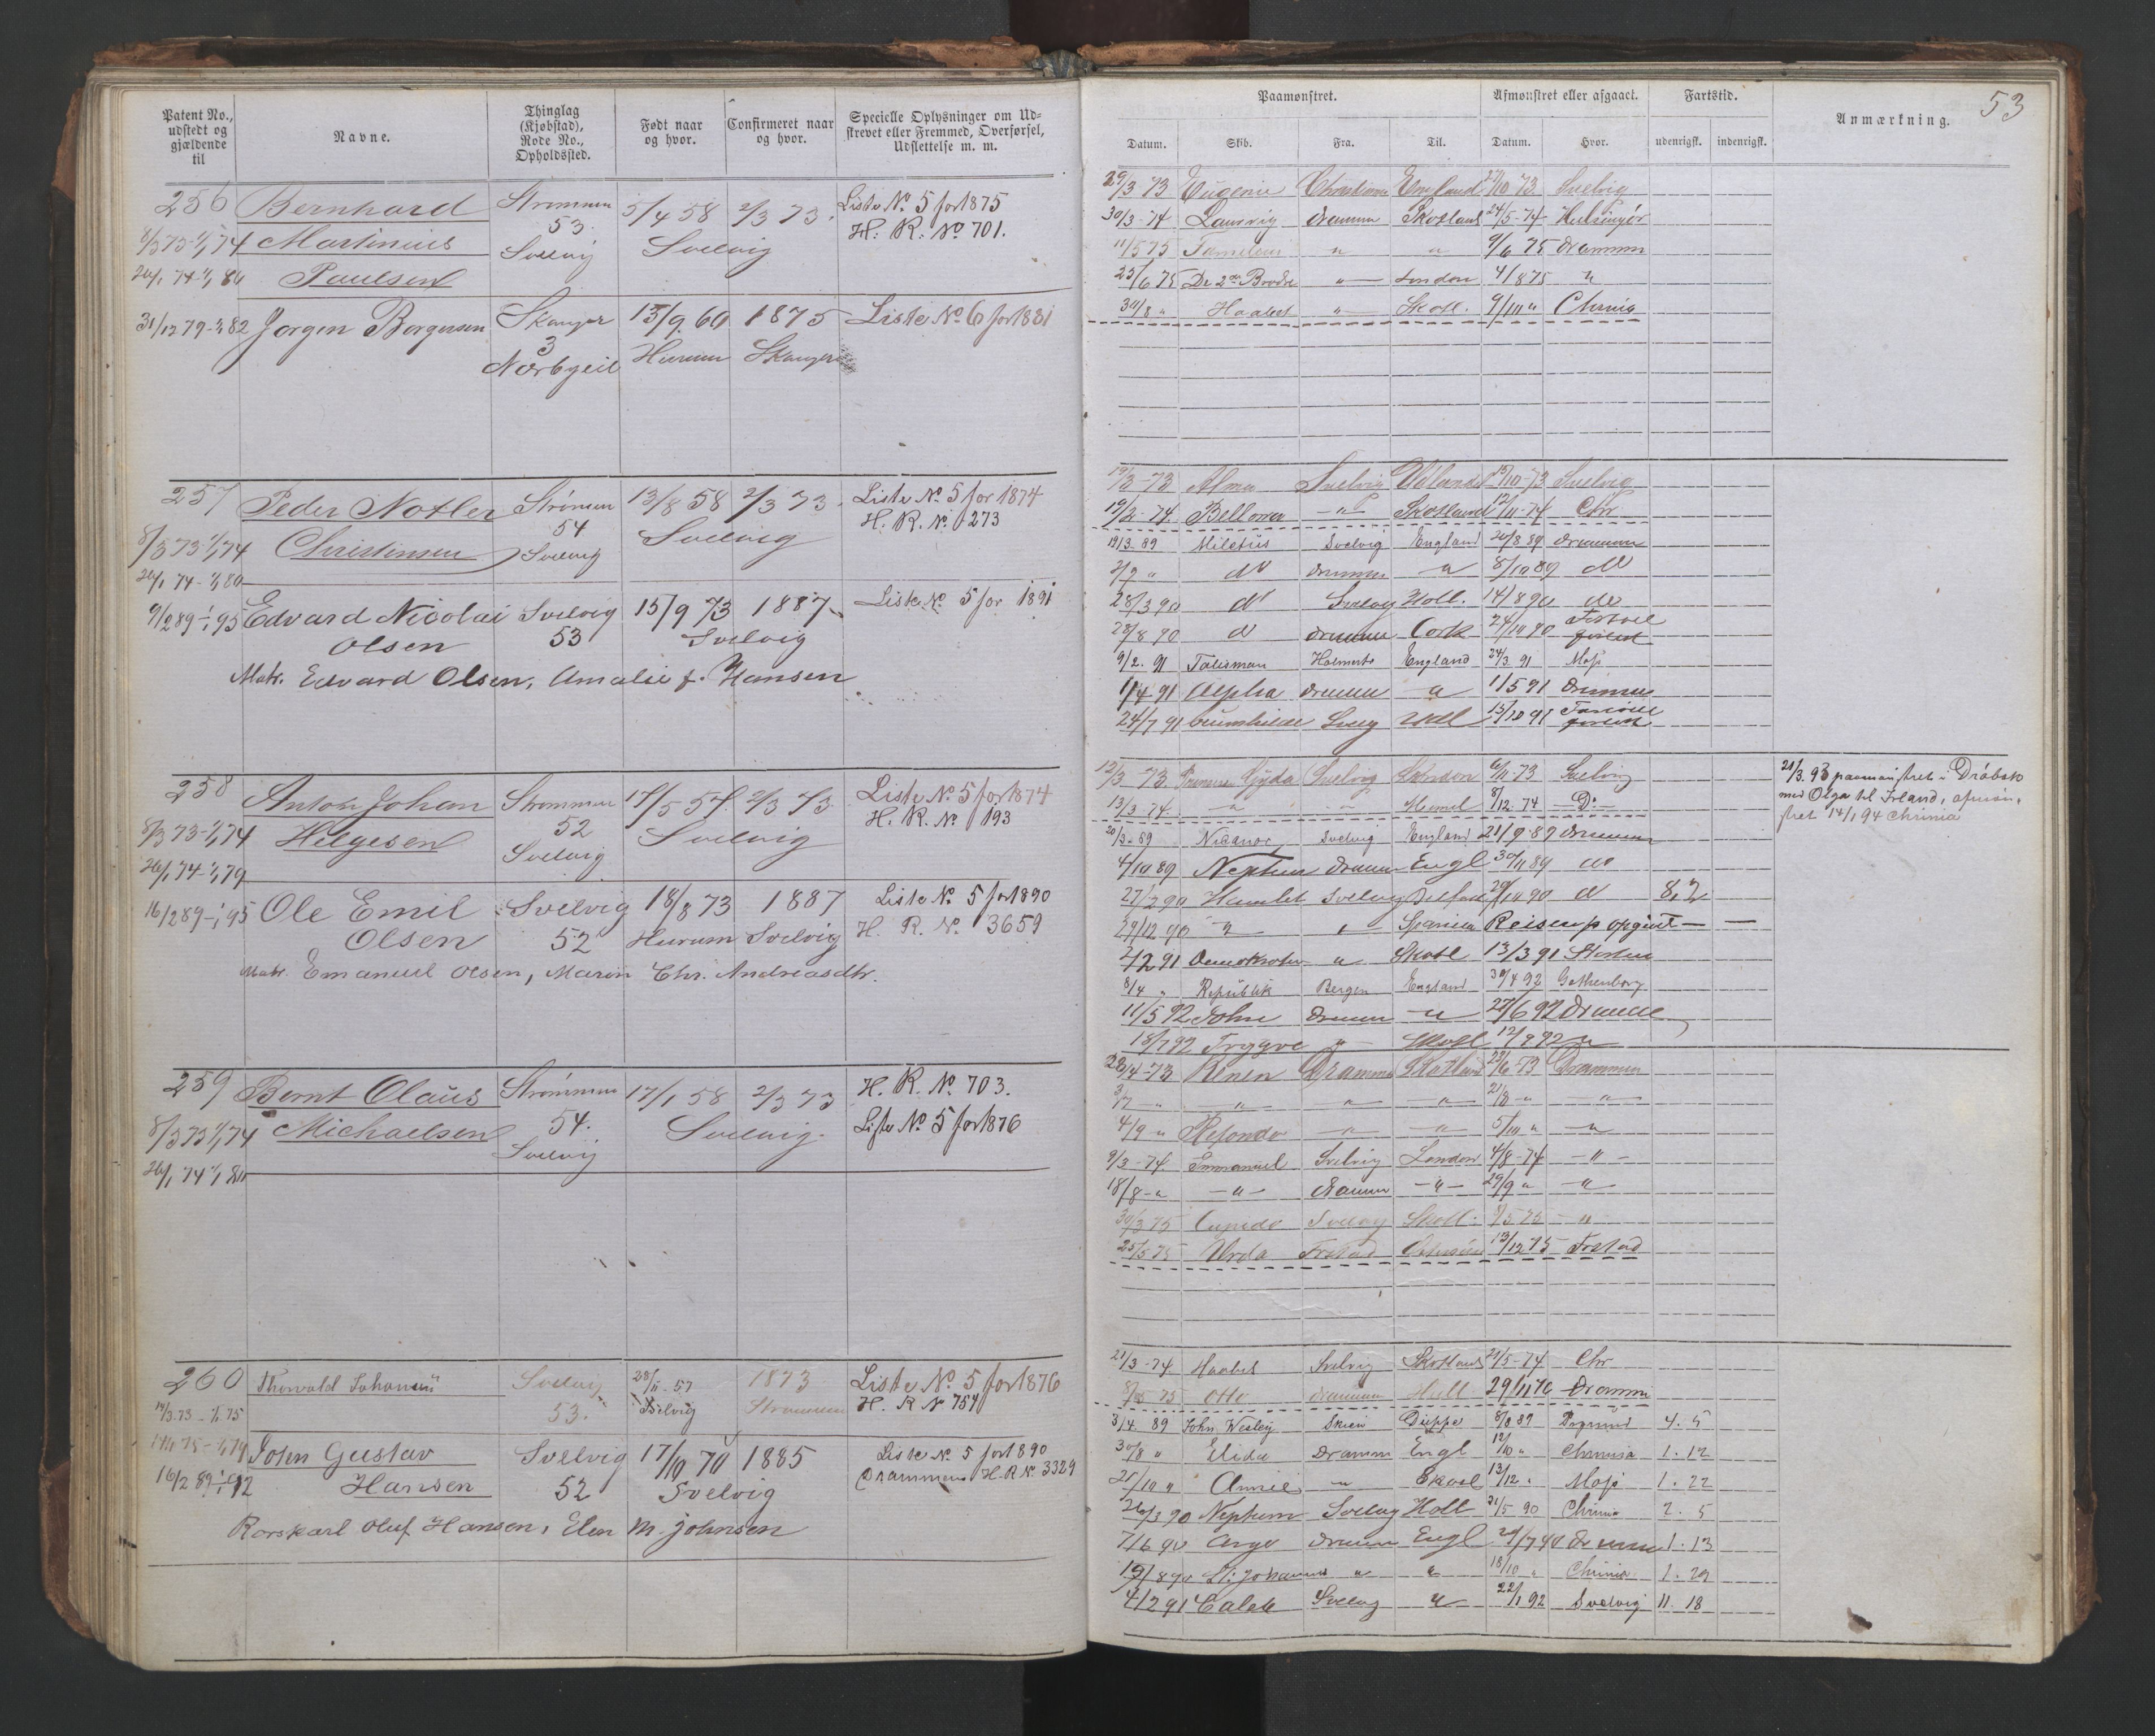 53
Patent No., udstedt og gjældende til
Navne.
Thinglag (Kjøbstad), Rode No., Opholdssted.
Født naar og hvor.
Confirmeret naar og hvor.
Specielle Oplysninger om Udskrevet eller Fremmed, Overførsel, Udslettelse m. m.
256 Bernhard Strømmen 5/4 58 2/3 73. Liste No. 5 for 1875
8/3 73-1/1 74 Martinius 53. Svelvig H. R. No 701.
Paulsen Svelvig
31/12 79-1/1 82 Jørgen Borgersen Skanger 13/9 60 1875 Liste No. 6 for 1881
3 Hurum Skanger
257 Peder Notler Strømmen 13/8 58 2/3 73. Liste No. 5 for 1874
54 Svelvig H. R. No. 273
8/3 73-1/1 74 Christensen Svelvig
9/2 89-1/1 95 Edvard Nicolai Svelvig 15/9 73 1887 Liste No. 5 for 1891
Olsen 53 Svelvig
Matr. Edvard Olsen, Amalie f. Hansen
258 Anton Johan Strømmen 2/3 73 Liste No. 5 for 1874
8/3 73-1/1 74 Helgesen 52 Svelvig H. R. No. 193
26/1 74-1/1 79 Svelvig
16/2 89-1/1 95 Ole Emil Svelvig 18/8 73 1887 Liste No. 5 for 1890
Olsen 52 Hurum Svelvig H. R. No. 3659
Matr. Emanuel Olsen, Maren Chr. Andreasdtr.
259 Bernt Olaus Strømmen 17/1 58 2/3 73 H. R. No. 703.
8/3 73 1/1 74 Michaelsen 54. Svelvig. Liste No. 5 for 1876
26/1 74 1/1 80 Svelvig
260 Thorvald Johansen Svelvig 28/11-57 1873 Liste No. 5 for 1876
53. Svelvig Strømmen H. R No 754
John Gustav Svelvig 17/10 70 1885 Liste No. 5 for 1890
16/2 89-1/1 92 Hansen 52 Svelvig Drammens H.R No. 3329
Rorskarl Oluf Hansen, Elen M. Johnsen
Paamønstret.
Afmønstret eller afgaaet.
Fartstid.
Anmærkning.
Datum. Skib. Fra. Til. Datum. Hvor. udenrigsk. indenrigsk.
29/3 73 Eugenie Christiania England 73 Svelvig
30/3-74 Laurvig Drammen Skotland 24/5-74 Helsingør
11/5 75 " " 9/6 75 Drammen
25/6 75 De 2de Brødre " London 4/8 75 "
30/8 " Haabet " Skotl. 9/10 " Chrnia
19/3-73 Alma Svelvig Udlandet 73 Svelvig
Bellona " Skotland 74 Chr.
19/3.89 Miletus Svelvig England 20/8 89 Drammen
2/9 " do Drammen " 8/10 89 do
28/3 90 do Svelvig Holl. 14/8 90 do
28/8 90 do Drammen Cork 24/10 90
9/2.91 Talisman Holmestr. England 24/3.91 Moss
1/4 91 Alpha Drammen " 1/5 91 Drammen
24/7 91 Svelvig 13/10 91
12/3 73 Gyda Svelvig London 6/11 73 Svelvig
13/3-74. " " 8/12-74 Do
20/3-89 Nicanor Svelvig England 21/9-89 Drammen
4/10 89 Neptun Drammen Engl 30/11 89 do
27/2 90 Hamlet Svelvig Belfast 90 do 8.2
29/12 90 " " Spanien Reisen opgivet
2/2 91 Demokraten " Skotl 13/3 91
8/4 " Republik Bergen England 30/4 92 Gothenborg
11/5 92 John Drammen " 27/6 92 Drammen
18/7 92 Trygve " Skotl 12/9 92 "
21/3.93 paamønstret i Drøbak
med Olga til Irland, afmøn-
stret 14/1 94 Chrinia
28/4-73 Drammen Skotland 23/6-73 Drammen
" " " " "
4/9 " " " 5/10 " "
9/3-74. Emmanuel Svelvig London 4/8-74 "
18/8-" " Drammen " 29/9 " "
30/3 75 Cupido Svelvig Skotl. 75 "
25/5 75 Urda Frstad 13/12 75 Frstad
21/3-74 Haabet Svelvig Skotland 21/5-74 Chr
75 Otto Drammen Hull 29/11 76 Dramm
3/4.89 John Wesley Skien Dieppe 8/8 89 4.5
30/8 " Elida Dramm Engl 12/10 " Chrinia 1.12
25/10 " Annie " Skotl 13/12 " Moss 1.22
26/3 90 Neptun Svelvig Holl 31/5 90 Chrinia 2.5
7/6 90 Argo Drammen Engl 20/7 90 Drammen 1.13
19/8 90 St. Johannes " " 18/10 " Chrinia 1.29
4/2 91 Caleb Svelvig " 22/1 92 Svelvig 11.18